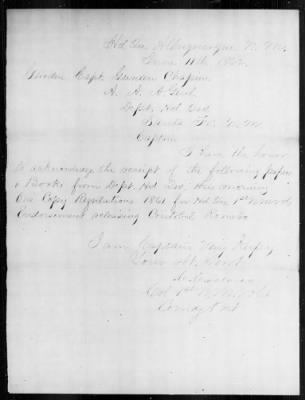 Hd Qrs Albuquerque N. M.
June 11th 1862.
Gurden Chapin
A. A. A. Genl
Dept. Hd Qrs
Santa Fe N. M
Captain
I have the honor
to acknowledge the receipt of the following papers
& Books from Dept. Hd Qrs this morning
One Copy Regulations 1861 for Hd Qrs 1st
Endorsement releasing Romero
I am Captain Very Respy
Your Obt Servt
Col 1st
Comdg